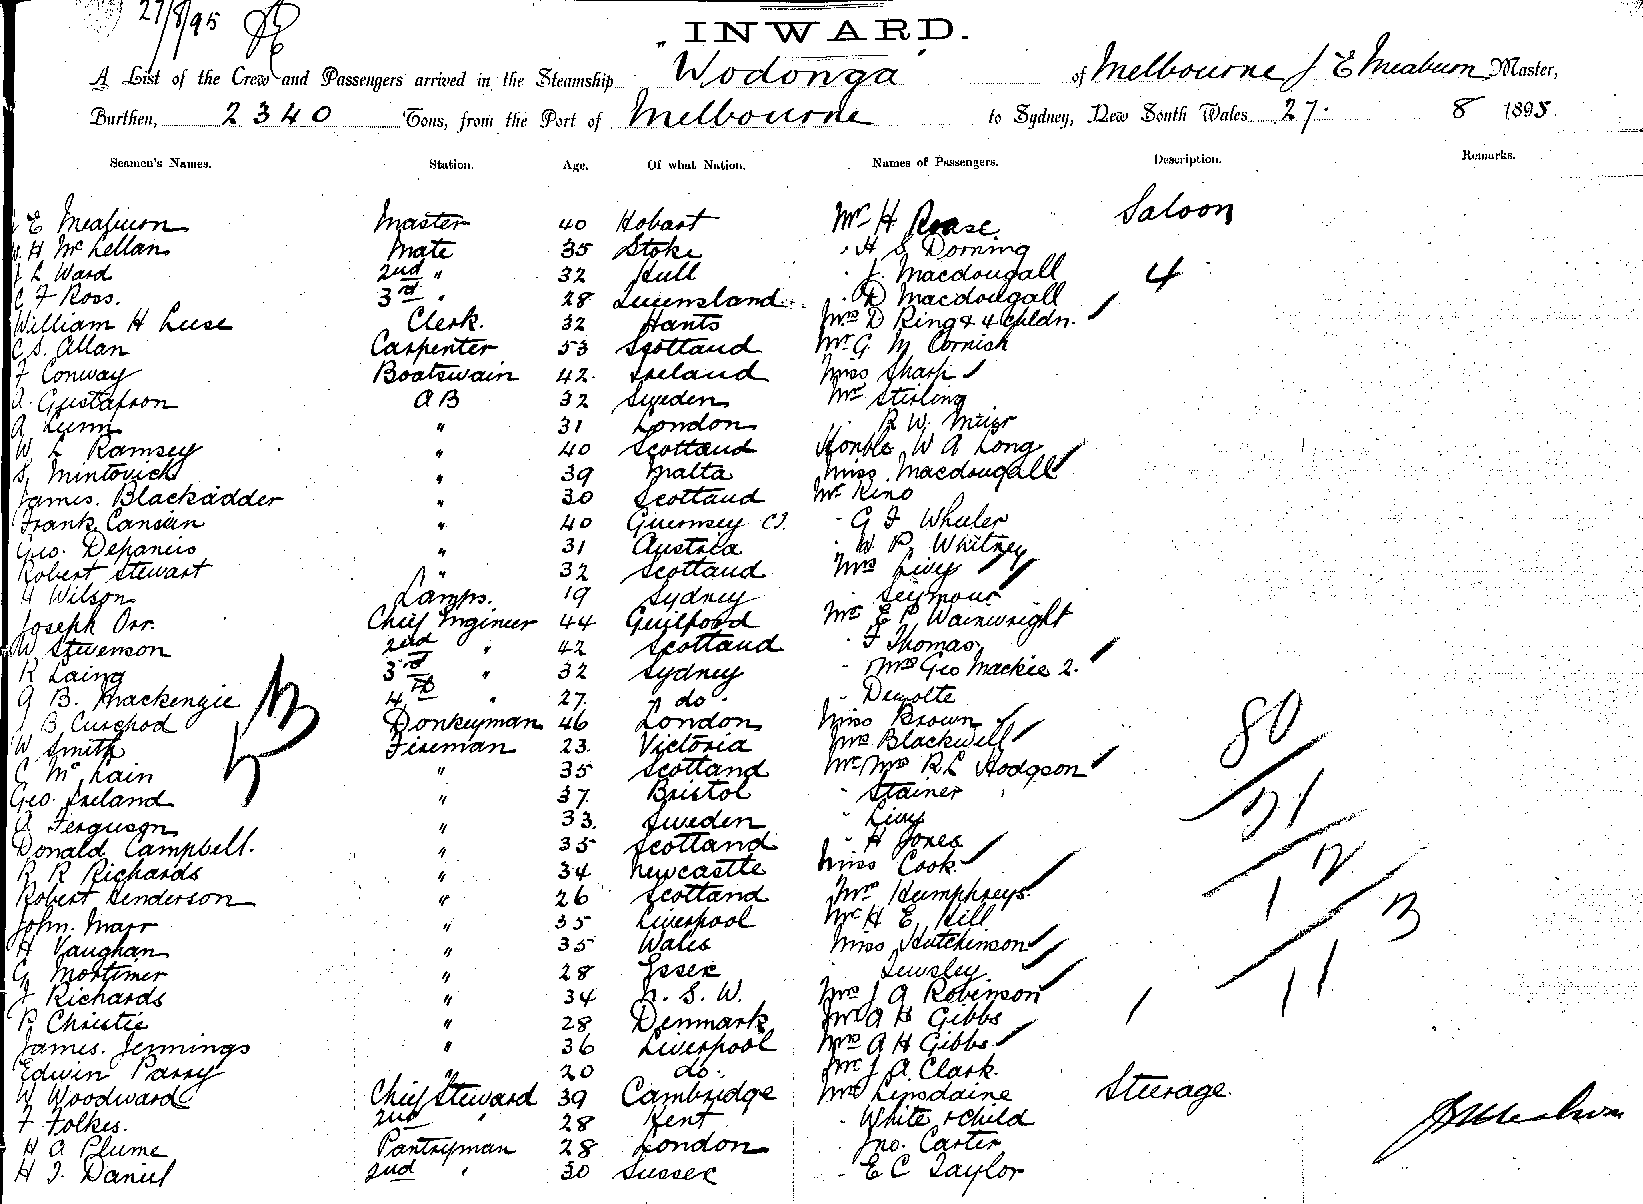 27/8/95
INWARD.
A List of the Crew and Passengers arrived in the Steamship Wodonga of Melbourne J E Meaburn Master,
Burthen, 2340 Tons, from the Port of Melbourne to Sydney, New South Wales 27. 8 1895.
Seamen's Names. Station. Age. Of what Nation. Names of Passengers. Description. Remarks.
J E Meaburn Master 40 Hobart Mr H Pease Saloon
W. H McLellan Mate 35 Stoke " H S Dorning
J L Ward 2nd " 32 Hull " J. Macdougall 4
C F Ross. 3rd " 28 Queensland " D Macdougall
William H Leese Clerk. 32 Hants Mrs D Ring & 4 chldn.
C S. Allan Carpenter 53 Scotland Mr G M Cornish
F Conway Boatswain 42 Ireland Miss Sharp
A. Gustafson AB 32 Sweden Mr Stirling
A Lunn " 31 London " R W. Muir
W L Ramsey " 40 Scotland Honble W A Long
S, Mintovich " 39 Malta Miss Macdougall
James. Blackadder " 30 Scotland Mr King
Frank " 40 Guernsey CI. " G F Wheeler
Geo. " 31 Austria " W P. Whitney
Robert Stewart " 32 Scotland Mrs Livy
H Wilson Lamps. 19 Sydney " Seymour
Joseph Orr. Chief Engineer 44 Guilford Mr E P Wainwright
W Stevenson 2nd " 42 Scotland " F Thomas
R Laing 3rd " 32 Sydney " Mrs Geo Mackie 2.
A B. Mackenzie 4th " 27. " do "
J B Donkeyman 46 London Miss Brown
W Smith Fireman 23. Victoria Mrs Blackwell 80
C McLain " 35 Scotland Mr Mrs R L Hodgson
Geo. Ireland " 37. Bristol " Stainer 71
A Ferguson " 33. Sweden " Livy
Donald Campbell. " 35 Scotland " H Jones
R R Richards " 34 Newcastle Miss Cook 12
Robert Henderson " 26 Scotland Mrs Humphreys 1
John. Marr " 35 Liverpool Mr H E Hill 13
H Vaughan " 35 Wales Miss Hutchinson
G Mortimer " 28 Essex " 11
J Richards " 34 N. S. W. Mrs J A Robinson 1
R Christie " 28 Denmark Mr A H Gibbs
James. Jennings " 36 Liverpool Mrs A H Gibbs
Edwin Parry " 20 do. Mr J. A. Clark.
W Woodward Chief Steward 39 Cambridge Mrs Lipsdaine Steerage
F Folkes. 2nd " 28 Kent " White & child
H A Plume Pantryman 28 London " Jno. Carter
H J. Daniel 2nd " 30 Sussex " E C Taylor